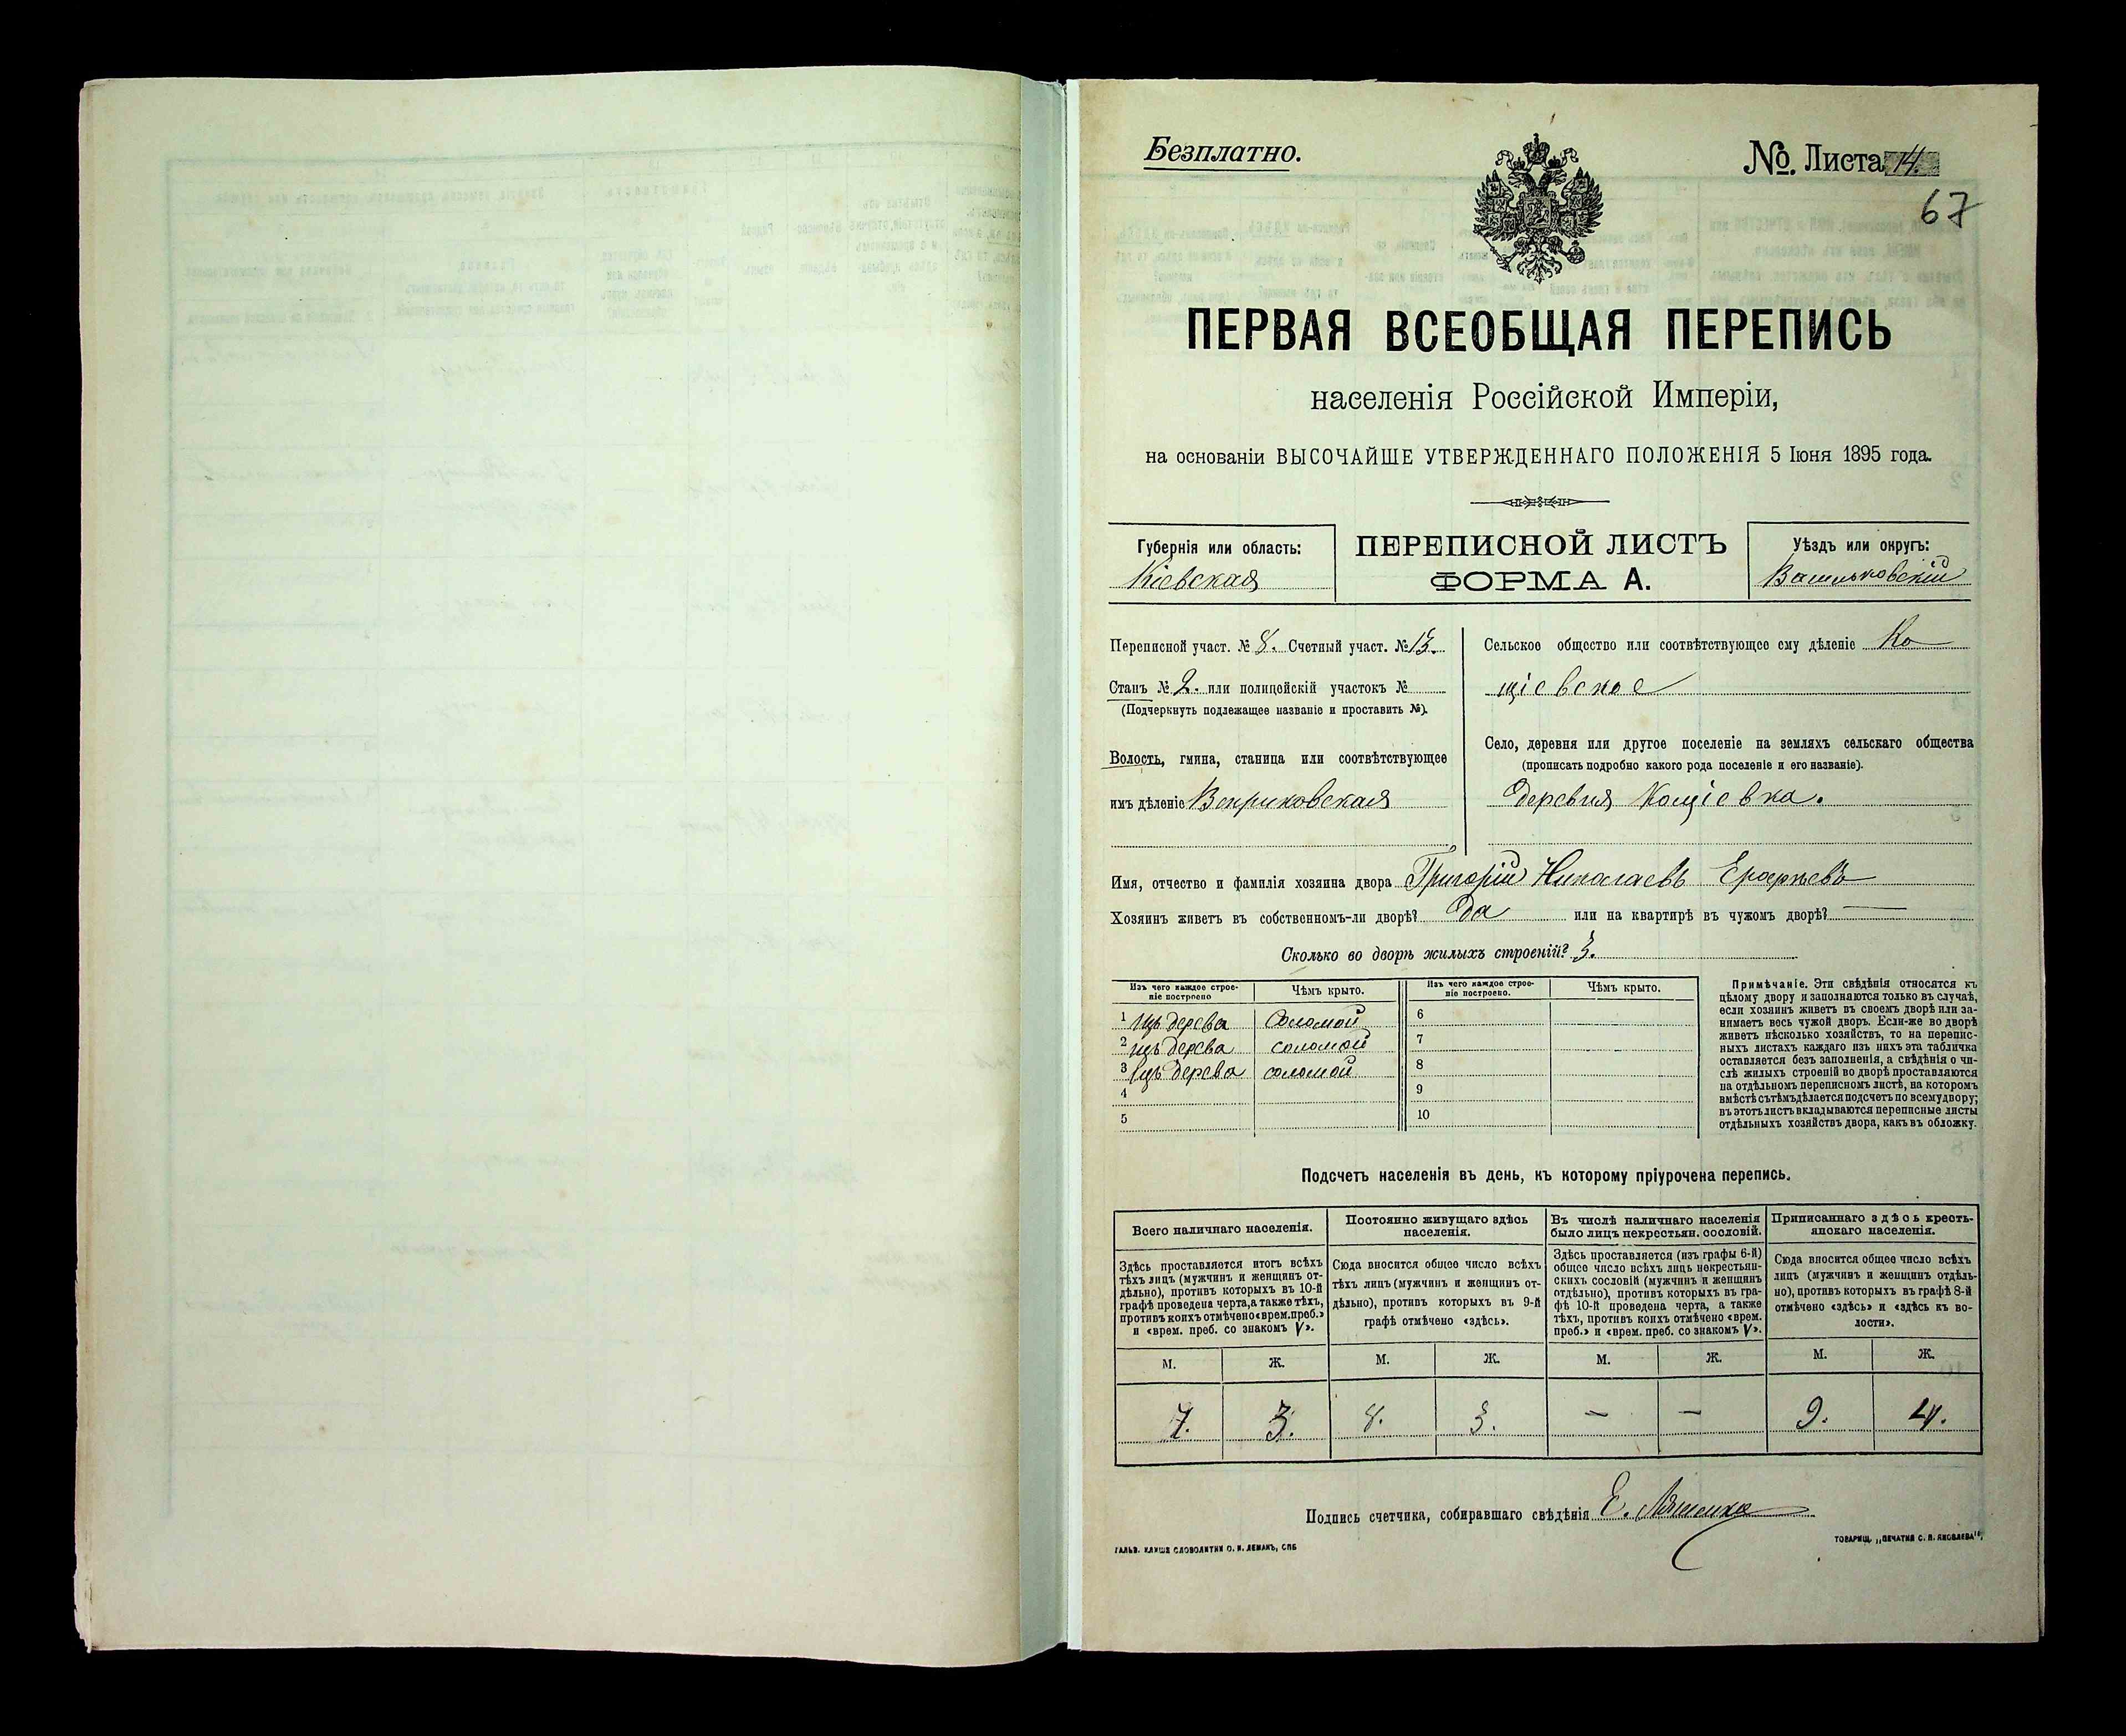 Безплатно.
№. Листа 14.
67
ПЕРВАЯ ВСЕОБЩАЯ ПЕРЕПИСЬ
населенія Россійской Имперіи,
на основаніи ВЫСОЧАЙШЕ УТВЕРЖДЕННАГО ПОЛОЖЕНІЯ 5 Іюня 1895 года.
Губернія или область:
Кіевская
ПЕРЕПИСНОЙ ЛИСТЪ
ФОРМА А.
Уѣздъ или округъ:
Васильковскій
Переписной участ. № 8. Счетный участ. № 13.
Станъ № 2. или полицейскій участокъ №
(Подчеркнуть подлежащее названіе и проставить №).
Волость, гмина, станица или соотвѣтствующее
имъ дѣленіе Веприковская
Сельское общество или соотвѣтствующее ему дѣленіе Ко
щіевское
Село, деревня или другое поселеніе на земляхъ сельскаго общества
(прописать подробно какого рода поселеніе и его названіе).
Деревня Кощіевка.
Имя, отчество и фамилія хозяина двора Григорій Николаевъ
Хозяинъ живетъ въ собственномъ-ли дворѣ? Да или на квартирѣ въ чужомъ дворѣ? —
Сколько во дворѣ жилыхъ строеній? 3.
Изъ чего каждое строе-
ніе построено
Чѣмъ крыто.
Изъ чего каждое строе-
ніе построено.
Чѣмъ крыто.
1 изъ дерева соломой
2 изъ дерева соломой
3 изъ дерева соломой
4
5
6
7
8
9
10
Примѣчаніе. Эти свѣдѣнія относятся къ
цѣлому двору и заполняются только въ случаѣ,
если хозяинъ живетъ въ своемъ дворѣ или за-
нимаетъ весь чужой дворъ. Если-же во дворѣ
живетъ нѣсколько хозяйствъ, то на перепис-
ныхъ листахъ каждаго изъ нихъ эта табличка
оставляется безъ заполненія, а свѣдѣнія о чи-
слѣ жилыхъ строеній во дворѣ проставляются
на отдѣльномъ переписномъ листѣ, на которомъ
вмѣстѣ съ тѣмъ дѣлается подсчетъ по всему двору;
въ этотъ листъ вкладываются переписные листы
отдѣльныхъ хозяйствъ двора, какъ въ обложку.
Подсчетъ населенія въ день, къ которому пріурочена перепись.
Всего наличнаго населенія.
Здѣсь проставляется итогъ всѣхъ
тѣхъ лицъ (мужчинъ и женщинъ от-
дѣльно), противъ которыхъ въ 10-й
графѣ проведена черта, а также тѣхъ,
противъ коихъ отмѣчено «врем. преб.»
и «врем. преб. со знакомъ V».
Постоянно живущаго здѣсь
населенія.
Сюда вносится общее число всѣхъ
тѣхъ лицъ (мужчинъ и женщинъ от-
дѣльно), противъ которыхъ въ 9-й
графѣ отмѣчено «здѣсь».
Въ числѣ наличнаго населенія
было лицъ некрестьян. сословій.
Здѣсь проставляется (изъ графы 6-й)
общее число всѣхъ лицъ некрестьян-
скихъ сословій (мужчинъ и женщинъ
отдѣльно), противъ которыхъ въ гра-
фѣ 10-й проведена черта, а также
тѣхъ, противъ коихъ отмѣчено «врем.
преб.» и «врем. преб. со знакомъ V».
Приписаннаго здѣсь кресть-
янскаго населенія.
Сюда вносится общее число всѣхъ
лицъ (мужчинъ и женщинъ отдѣль-
но), противъ которыхъ въ графѣ 8-й
отмѣчено «здѣсь» и «здѣсь къ во-
лости».
М. Ж. М. Ж. М. Ж. М. Ж.
7. 3. 8. 3. — — 9. 4.
Подпись счетчика, собиравшаго свѣдѣнія Е.
ГАЛЬВ. КЛИШЕ СЛОВОЛИТНИ О. И. ЛЕМАНЪ, СПБ
ТОВАРИЩ. „ПЕЧАТНЯ С. П. ЯКОВЛЕВА“,